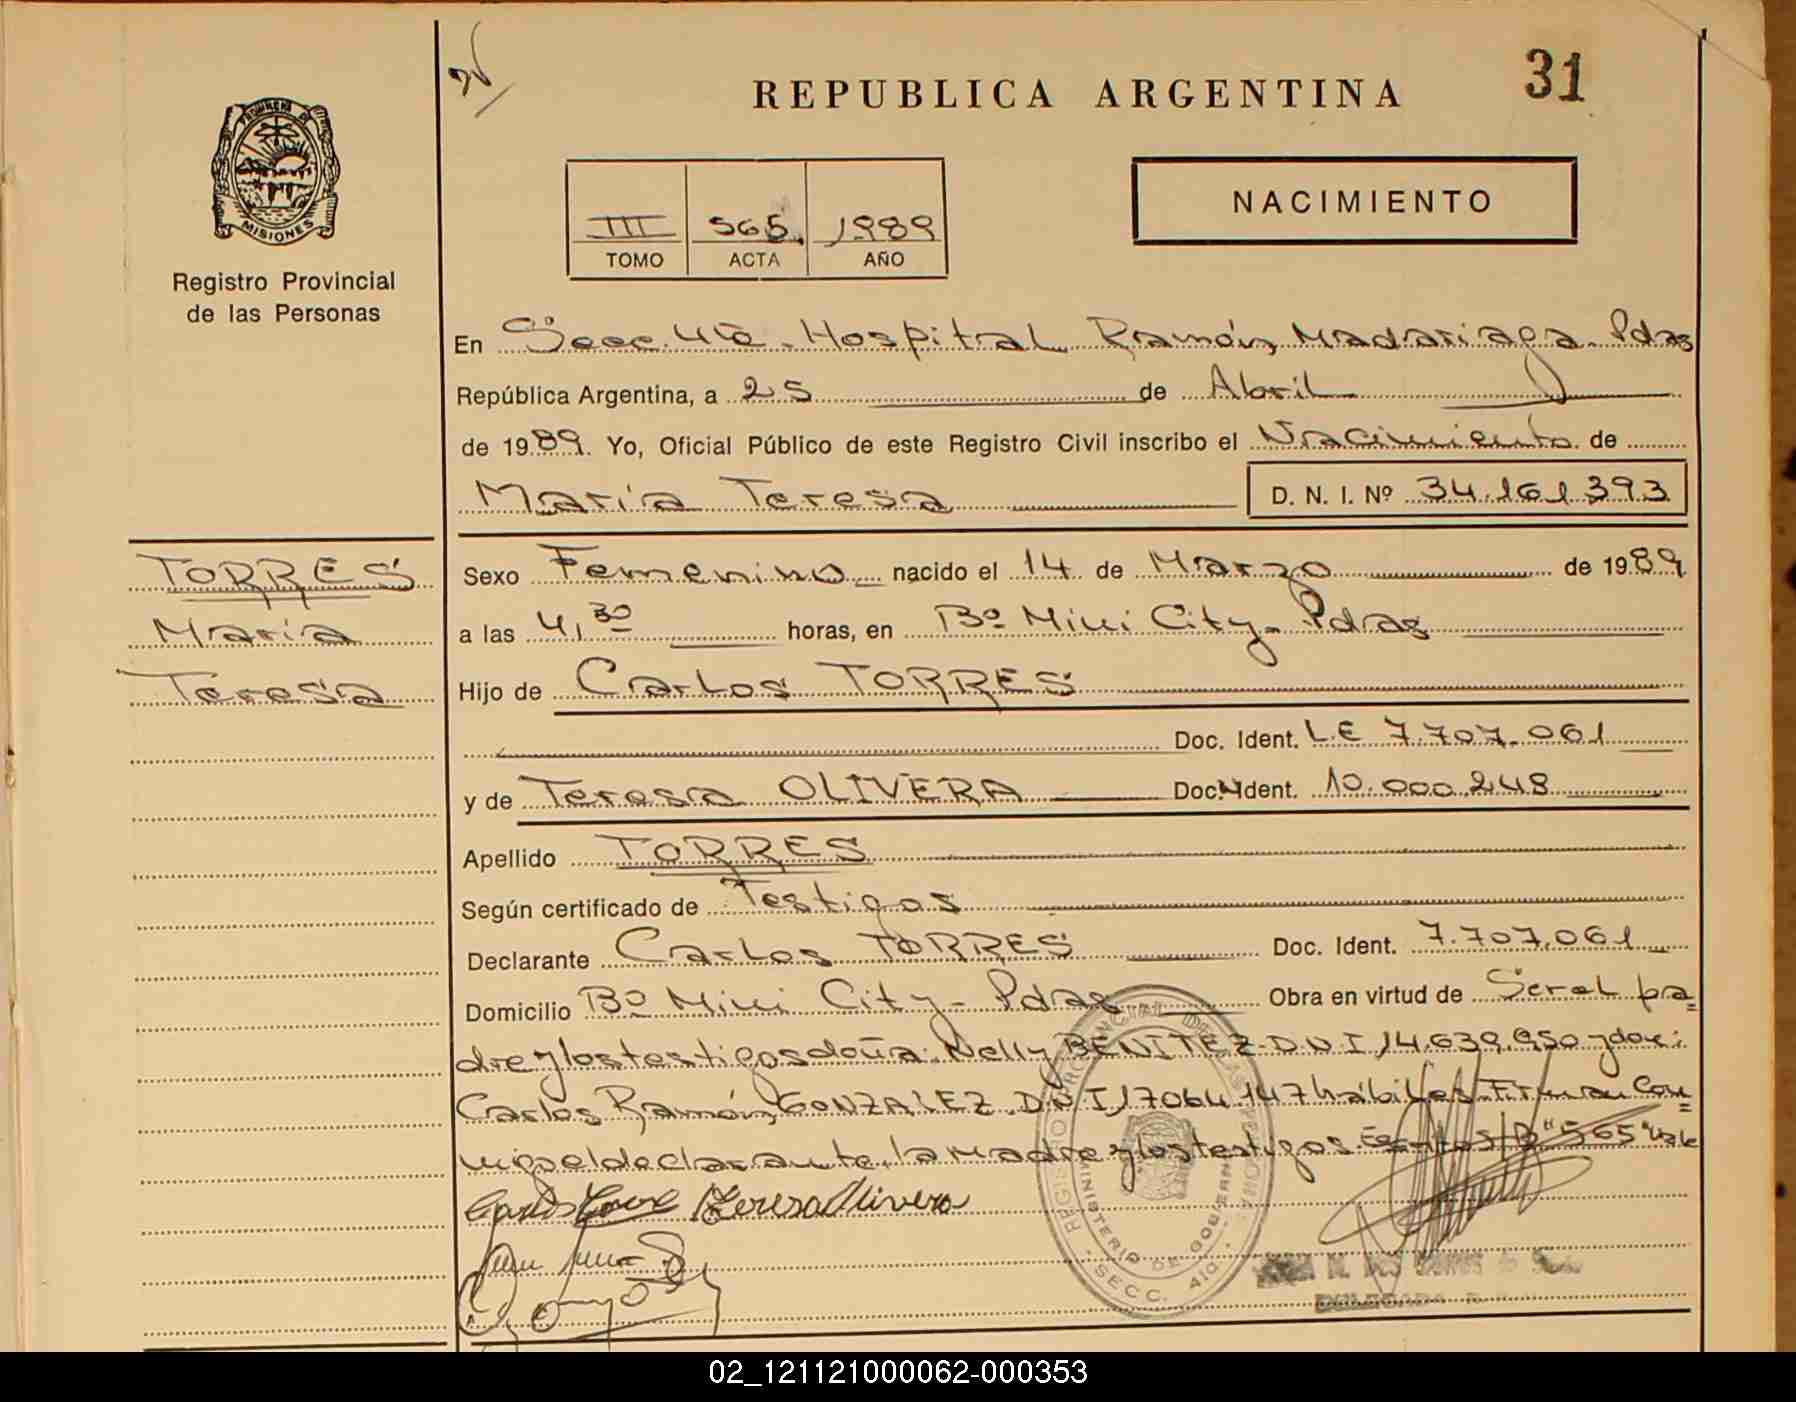 31
REPUBLICA ARGENTINA
PROVINCIA DE
MISIONES
Registro Provincial
de las Personas
III 565 1989
TOMO ACTA AÑO
NACIMIENTO
En Secc. 4ta. Hospital Ramón Madariaga. Pdas
República Argentina, a 25 de Abril
de 1989. Yo, Oficial Público de este Registro Civil inscribo el Nacimiento de
María Teresa D. N. I. Nº 34.161.393
TORRES
María
Teresa
Sexo Femenino nacido el 14 de Marzo de 1989
a las 4,30 horas, en Bº Mini City - Pdas
Hijo de Carlos TORRES
Doc. Ident. L.E 7.707.061
y de Teresa OLIVERA Doc. Ident. 10.000.248
Apellido TORRES
Según certificado de Testigos
Declarante Carlos TORRES Doc. Ident. 7.707.061
Domicilio Bº Mini City - Pdas Obra en virtud de Ser el pa=
dre y los testigos doña: Nelly BENITEZ. D.N.I 14.639.950 y don:
Carlos Ramón GONZALEZ. D.N.I 17064.147 hábiles. Firman Con=
migo el declarante, la madre y los testigos. S/R "565" Vale
Carlos Torres Teresa Olivera
REGISTRO PROVINCIAL DE LAS PERSONAS
MINISTERIO DE GOBIERNO
SECC. 4ta.
02_121121000062-000353